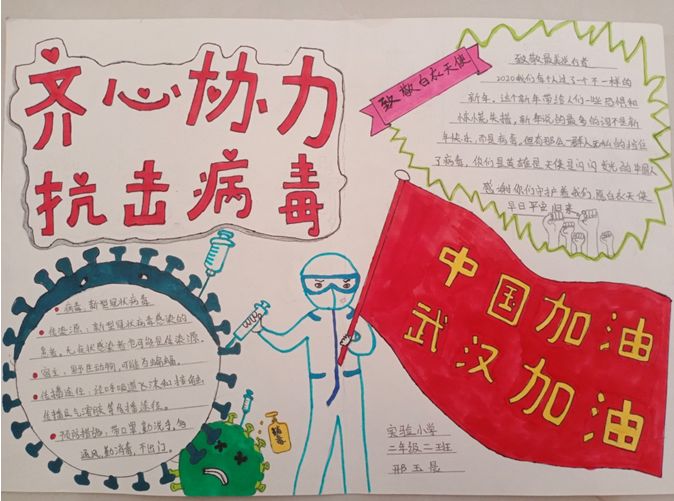 齐心协力
抗击病毒
致敬白衣天使
致敬最美逆行者
2020我们每个人过了一个不一样的
新年,这个新年带给人们一些恐惧和
惊慌失措,新年说的最多的词不是新
年快乐,而是病毒,但有那么一群人
了病毒,你们是英雄是天使是闪闪发光的中国人
感谢你们守护着我们,愿白衣天使
早日平安归来
病毒:新型冠状病毒
传染源:新型冠状病毒感染的
患者,无症状感染者也可能是传染源.
宿主:野生动物,可能为蝙蝠.
传播途径:经呼吸道飞沫和接触
传播及气溶胶等传播途径。
预防措施:带口罩,勤洗手,多
通风,勤消毒,不出门。
消毒
中国加油
武汉加油
实验小学
二年级二班
邢玉